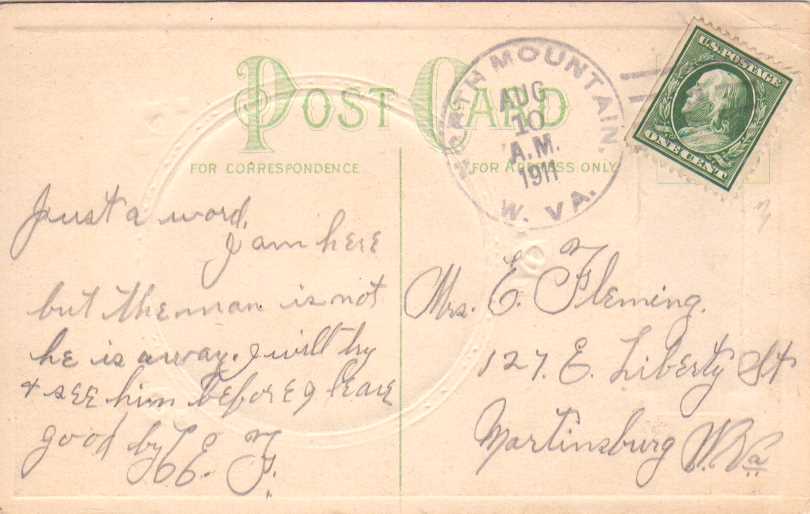 POST CARD
FOR CORRESPONDENCE
FOR ADDRESS ONLY
NORTH MOUNTAIN,
AUG
10
A.M.
1911
W. VA.
U.S. POSTAGE
ONE CENT
Just a word,
I am here
but the man is not
he is away. I will try
& see him before I leave
good by
E. F.
Mrs. E. Fleming.
127. E. Liberty St
Martinsburg W. Va